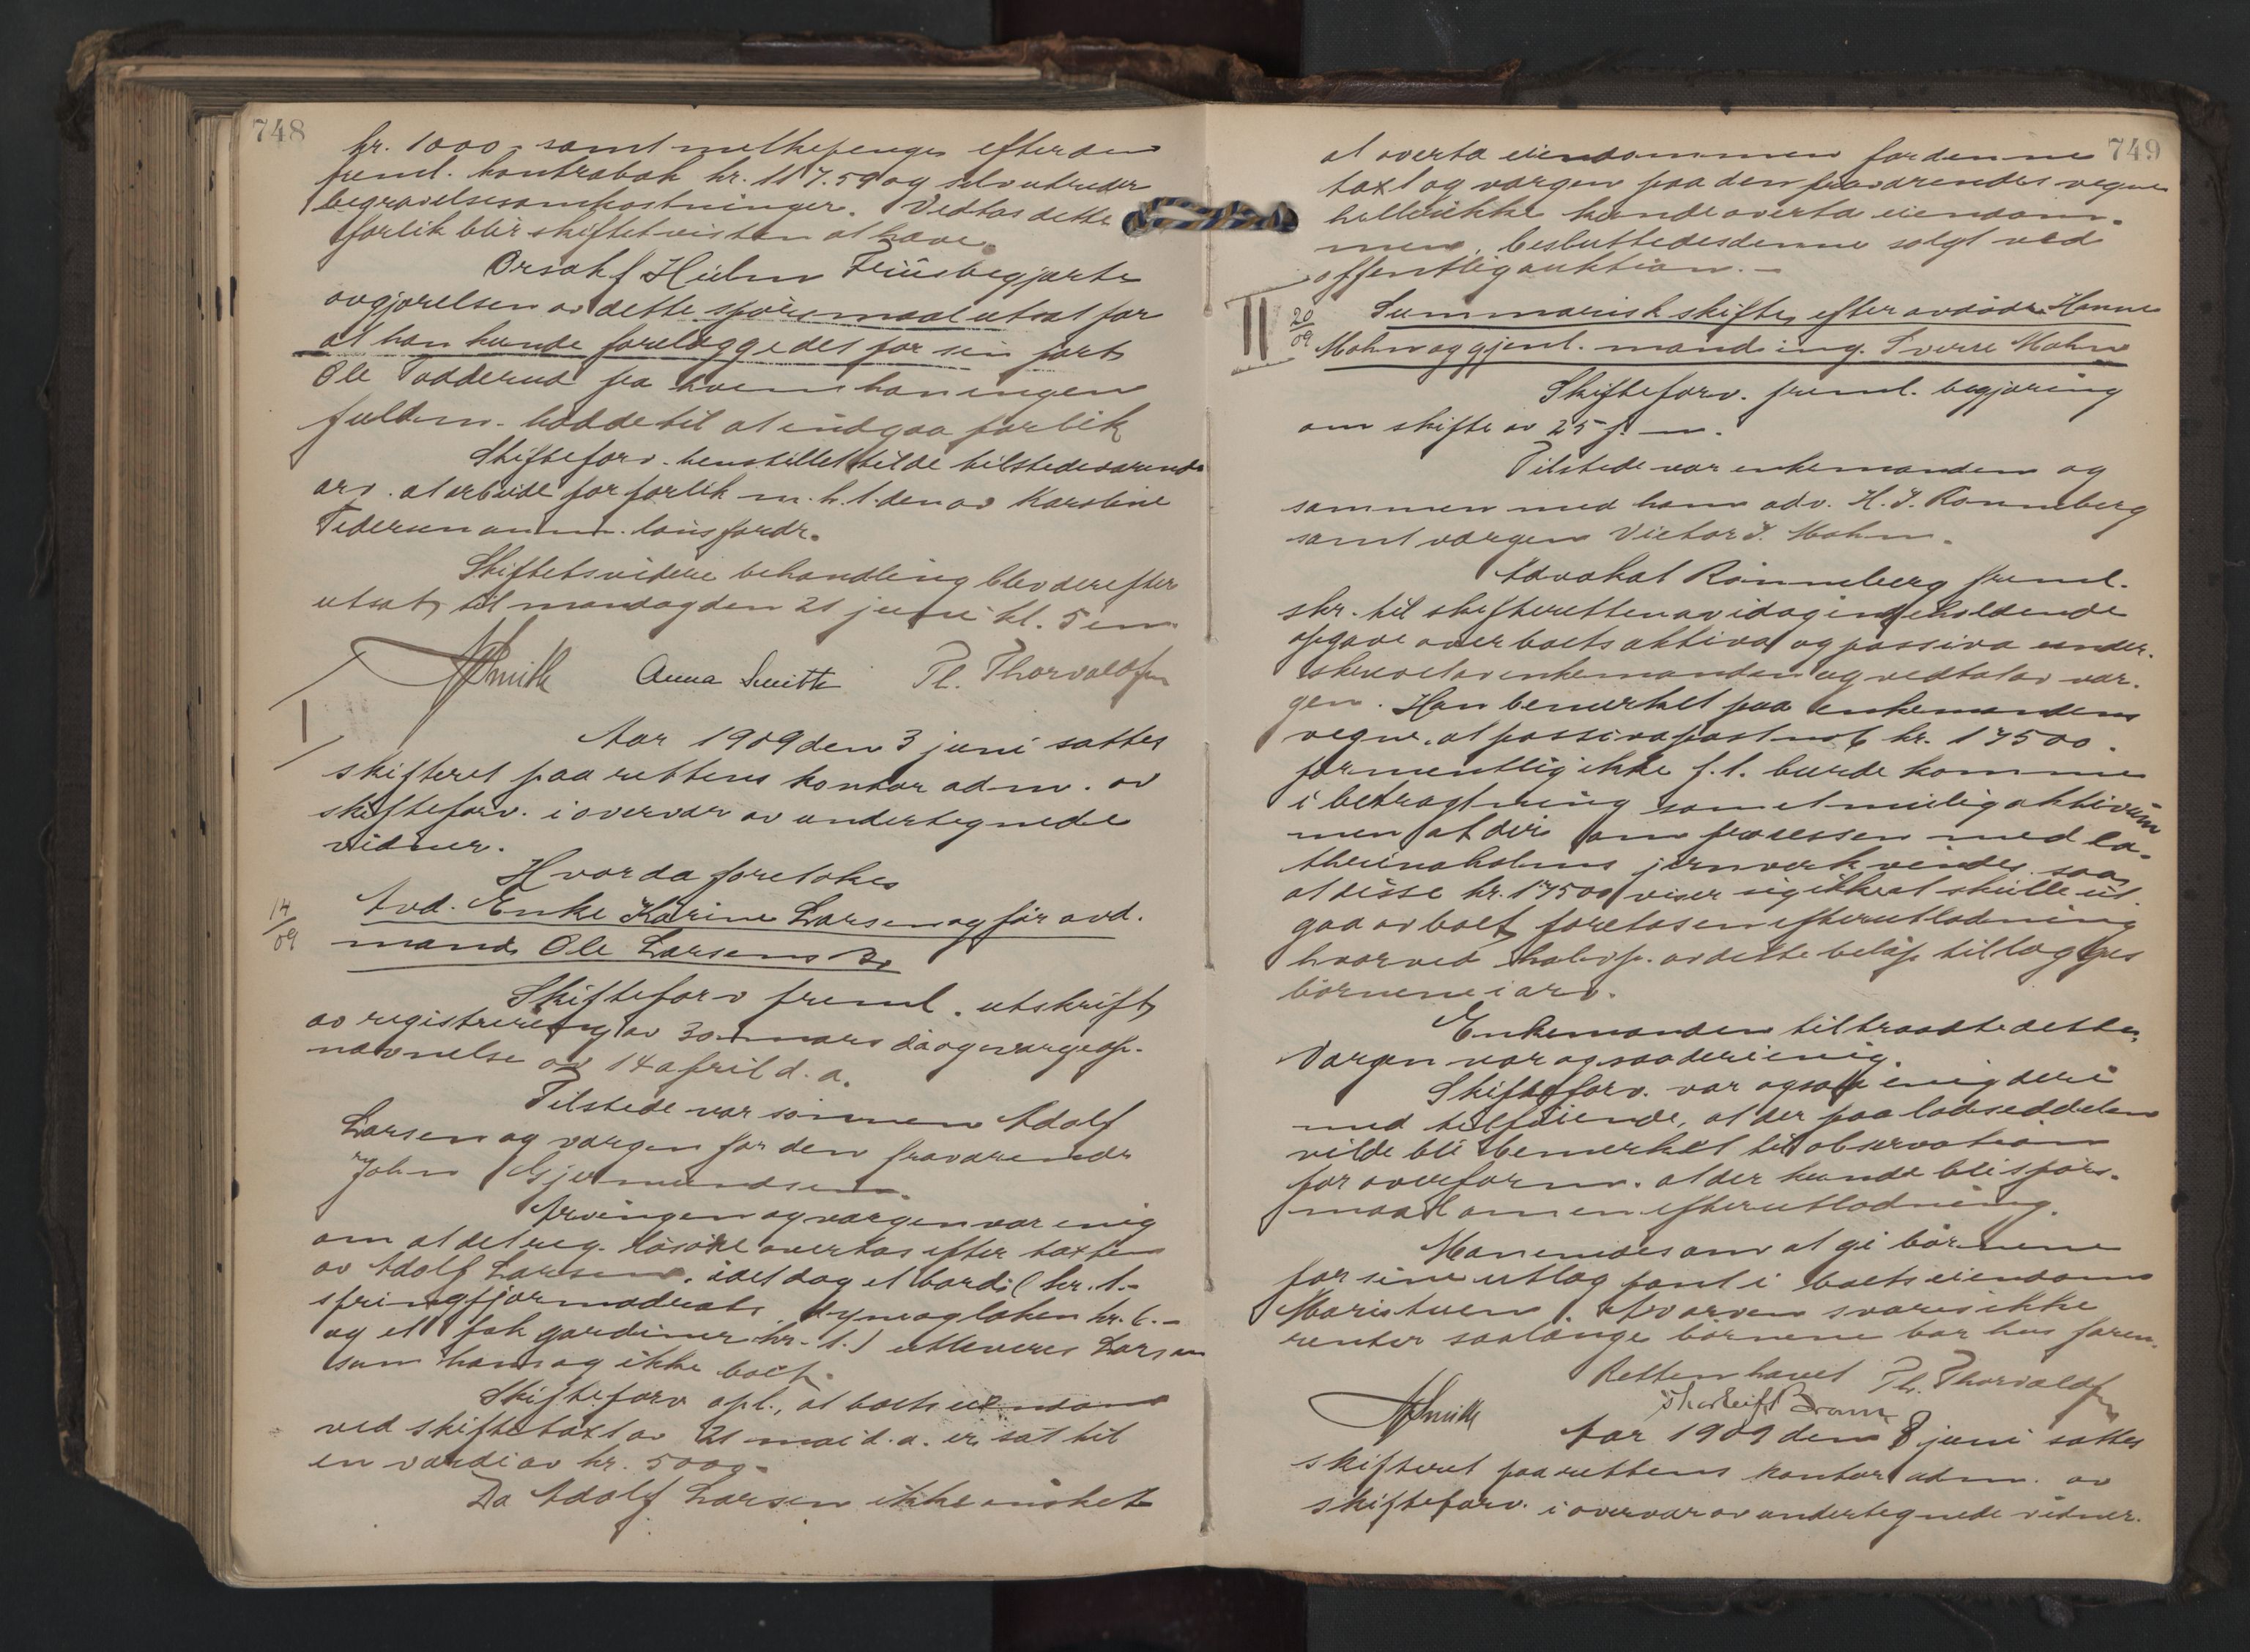 748
kr. 1000,- samt melkepenger efter den
freml. kontrabok kr. 117.59 og selv utreder
begravelsesomkostninger. Vedtas dette
forlik blir skiftet visstnok at hæve.
Orsakf. Hielm Friis begjærte
avgjørelsen av dette spörsmaal utsat for
at han kunde forelægge det for sin part
Ole Todderud fra hvem han ingen
fuldm. hadde til at indgaa forlik
Skifteforv. henstillet til de tilstedeværende
arv. at arbeide for forlik m. h. t. den av Karoline
Pedersen anm. lönsfordr.
Skiftets videre behandling blev derefter
utsat til mandag den 21 juni kl. 5 em.
Smith Anna Smith Th. Thorvaldsen
I
Aar 1909 den 3 juni sattes
skifteret paa rettens kontor adm. av
skifteforv. i overvær av undertegnede
vidner.
Hvorda foretokes
14/09
Avd. Enke Karine Larsen og før avd.
mands Ole Larsens bo
Skifteforv freml. utskrift
av registrering av 30 mars d.a og værgeop-
nævnelse av 14 april d. a.
Tilstede var sönnen Adolf
Larsen og værgen for den fraværende
John Gjermundsen.
Arvingen og værgen var enig
om at det reg. lösöre overtas efter taxten
av Adolf Larsen, idet dog et bord (kr. 1.-
springfjærmadrats, dyne og laken kr. 6.-
og et fak gardiner kr. 1.) utleveres Larsen
som hans og ikke boets.
Skifteforv opl., at boets eiendom
ved skiftetaxt av 21 mai d. a. er sat til
en værdi av kr. 500,-
Da Adolf Larsen ikke önsket
749
at overta eiendommen for denne
taxt og værgen paa den fraværendes vegne
heller ikke kunde overta eiendom-
men, besluttedes denne solgt ved
offentlig auktion.-
II
20/09
Summarisk skifte efter avdöde Hanne
Mohn og gjenl. mand ing. Sverre Mohn
Skifteforv. freml. begjæring
om skifte av 25 f. m.
Tilstede var enkemanden og
sammen med ham adv. H. J. Rönneberg
samt værgen Victor J. Mohn.
Advokat Rönneberg freml.
skr. til skifteretten av idag indeholdende
opgave over boets aktiva og passiva under-
skrevet av enkemanden og vedtat av vær-
gen. Han bemerket paa enkemandens
vegne, at passivapost no 6 kr. 17500.
formentlig ikke f. t. burde komme
i betragtning som et mulig aktivum
men at der om processen med Ca-
thrineholms jernverk vindes saa
at disse kr. 17500 viser sig ikke at skulle ut-
gaa av boet, foretas en efterutlodning
hvorved halvp. av dette belöp tillægges
börnene i arv.
Enkemanden tiltraadte dette.
Værgen var ogsaa deri enig.
Skifteforv. var ogsaa enig deri
med tilföiende, at der paa lodseddelen
vilde bli bemerket til observation
for overform. at der kunde bli spörs-
maal om en efterutlodning.
Man enedes om at gi börnene
for sine utlæg pant i boets eiendom
Maristuen. Av arven svares ikke
renter saalænge börnene bor hos faren.
Retten hævet Th. Thorvaldsen
Smith Thorleif Bram
Aar 1909 den 8 juni sattes
skifteret paa rettens kontor adm. av
skifteforv. i overvær av undertegnede vidner.